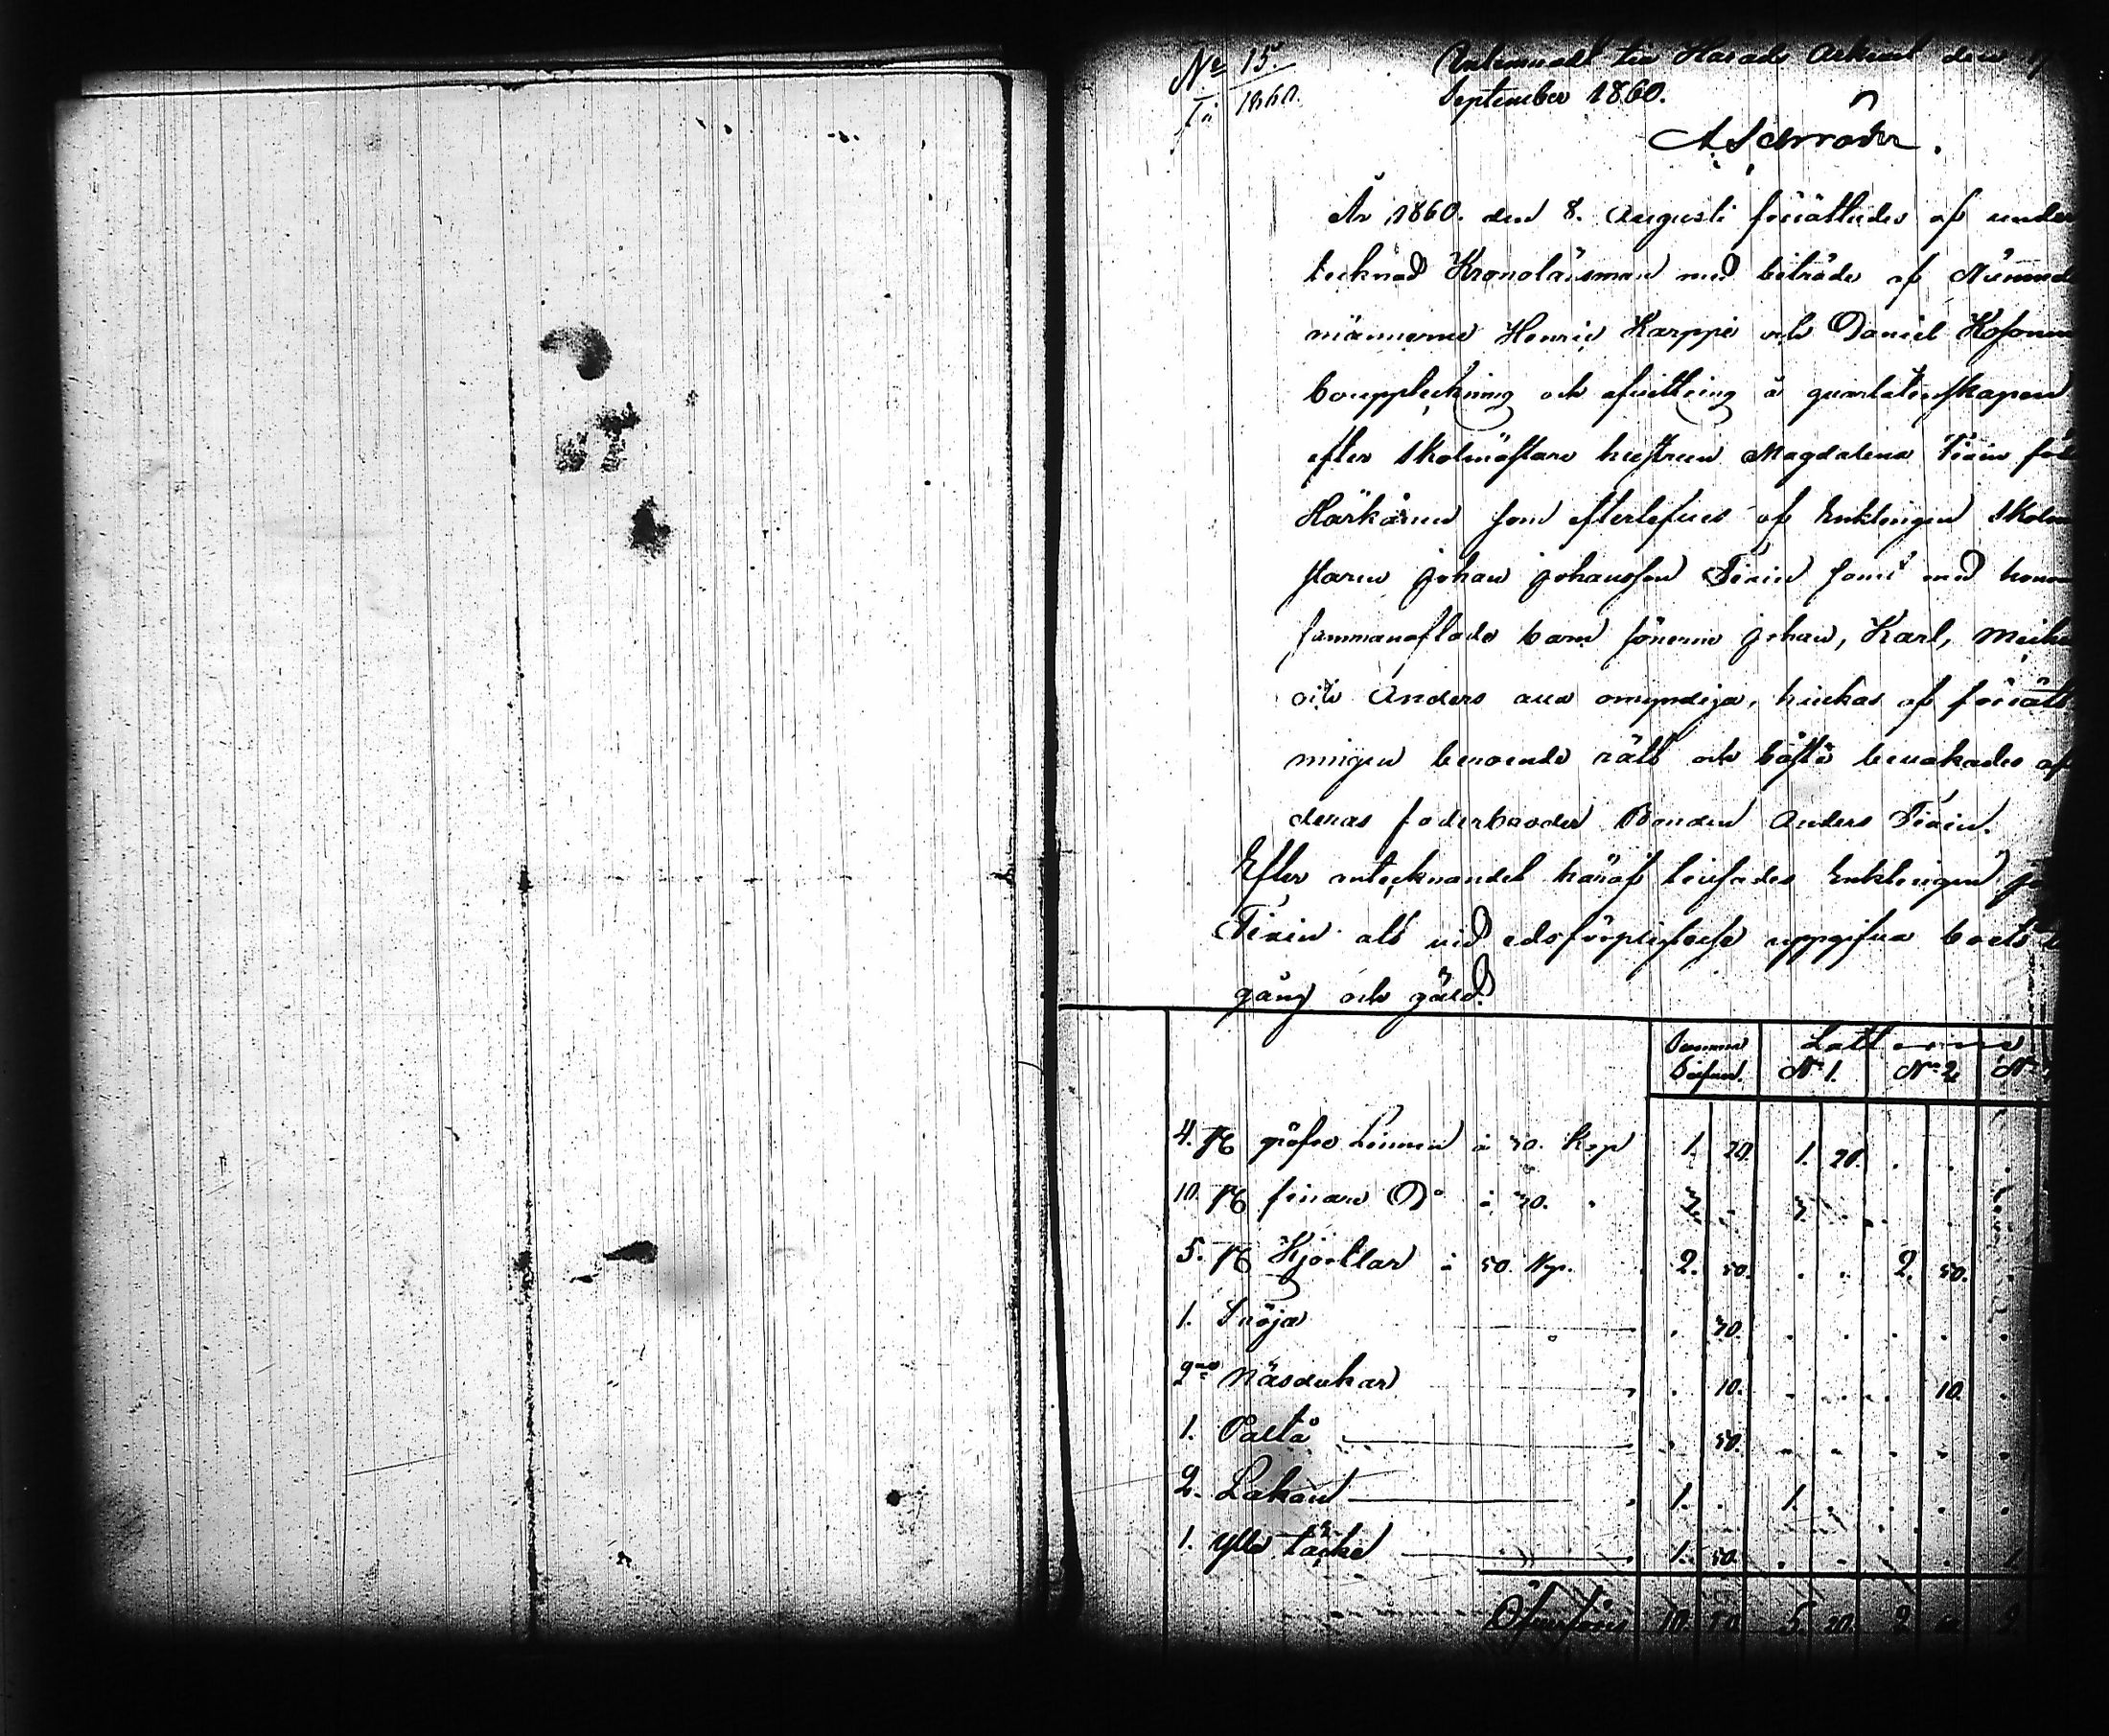 No 15.
1860.
till Härads Arkivet den
September 1860.
A. Schröder.
År 1860. den 8. Augusti förrättades af under
tecknad Kronolänsman med biträde af Nämnde
männerne Henric Karppi och Daniel Kosonen
bouppteckning och afvittring å qvarlåtenskapen
efter Skolmästare hustrun Magdalena född
Härkönen som efterlefves af Enklingen Skolmä
staren Johan Johansson samt med honom
sammanaflade barn sönerne Johan, Karl, Michel
och Anders alla omyndiga, hvilkas af förrätt
ningen beroende rätt och bästa bevakades af
deras faderbroder Bonden Anders
Efter antecknandet häraf tillsades Enklingen
att vid edsförpligtelse uppgifva boets till
gång och gäld.
Summa Lotterne
Silfver. No 1. No 2. No
4. st gröfre Linnen à 30. Kop 1. 20. 1. 20.
10. st finare Do à 30. 3. 3.
5. st Kjortlar à 50. Kop. 2. 50. 2. 50.
1. Tröja 70.
2ne Näsdukar 10. 10.
1. Paltå 50.
2. Lakan 1. 1.
1. ylle täcke 1. 50. 1
Öfverföres 10. 50 5. 20. 2 60 2